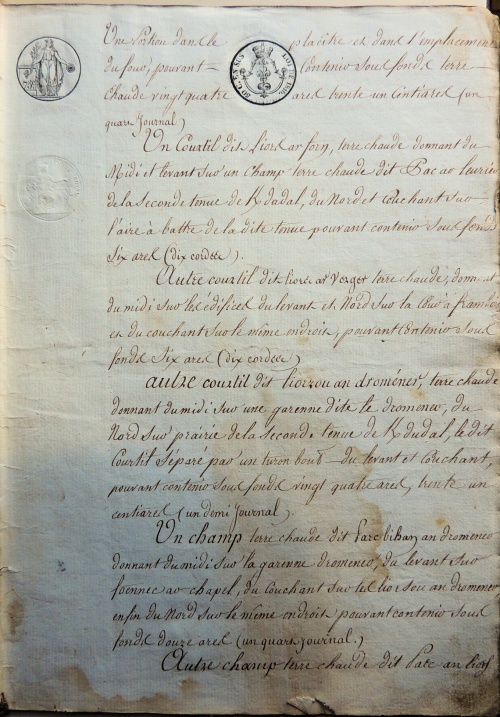 Une Portion dans le placître et dans l'emplacement
du four, pouvant contenir sous fond, terre
chaude vingt quatre ares trente un centiares (un
quart journal)
Un Courtil dit liors ar forn, terre chaude donnant du
Midi et levant sur un champ terre chaude dit Parc ao
de la seconde tenue de Kdudal, du Nord et Couchant sur
l'aire à battre de la dite tenue pouvant contenir sous fonds
Six ares (dix cordes).
Autre courtil dit liors ar Verger terre chaude,
du midi sur les édifices du levant et Nord sur la
et du couchant sur le même endroit, pouvant Contenir sous
fonds Six ares (dix cordes)
autre courtil dit liorzou an droménec, terre chaude
donnant du midi sur une garenne dite le dromenec, du
Nord sur prairie de la seconde tenue de Kdudal, le dit
Courtil séparé par un turon bout du levant et Couchant,
pouvant contenir sous fonds vingt quatre ares, trente un
centiares (un demi Journal).
Un champ terre chaude dit Parc bihan an dromenec
donnant du midi sur la garenne dromenec, du levant sur
foennec ar chapel, du Couchant sur les liorsou an dromenec
enfin du Nord sur le même endroit pouvant contenir sous
fonds douze ares (un quart Journal.)
Autre champ terre chaude dit Parc an liors